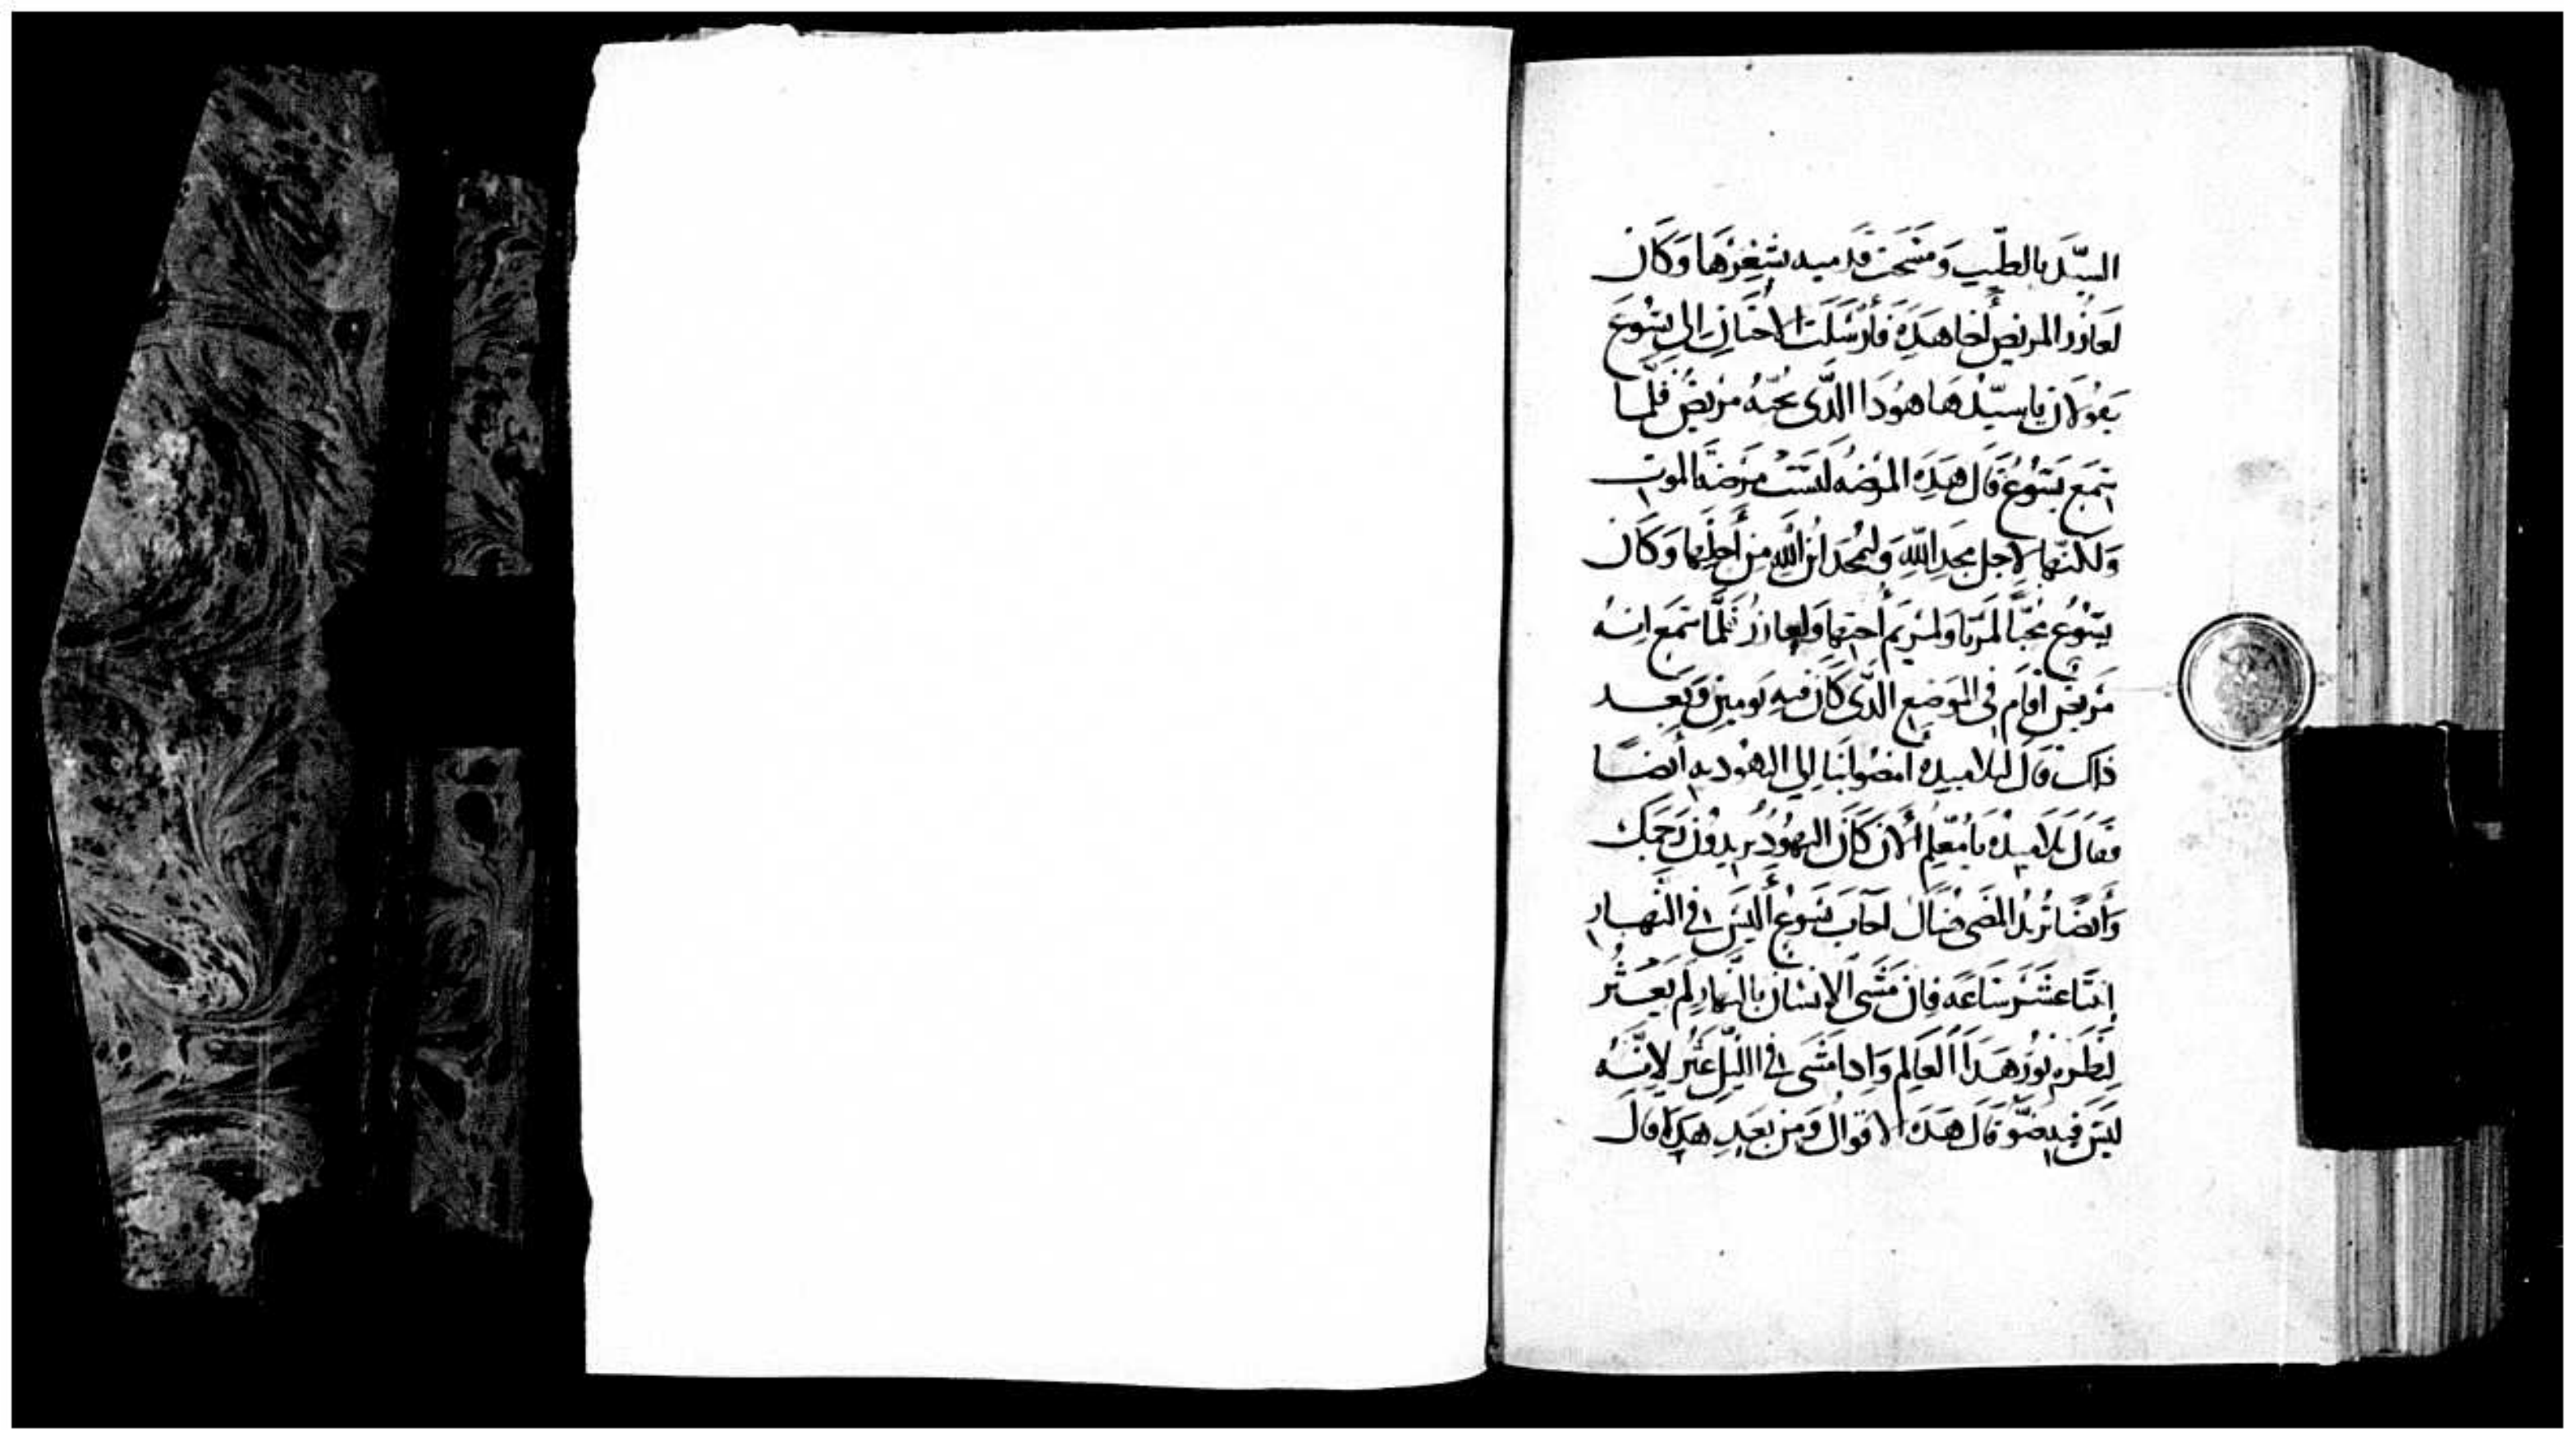 السيّد بالطّيب وَمَسَحَت قَدميه بشعْرهَا وَكَانَ
لعَازر المريض أخا هَذِهِ فَأرْسَلَت الاختَانِ الى يَسُوعَ
يَقولانِ يا سيّد هَا هوَذا الّذى تحبّهُ مَريضٌ فلمّا
سَمِعَ يَسُوعُ قَالَ هَذِهِ المرْضَه ليسَتْ مَرضَة الموت
وَلكنّها لاجل مجدِ اللّهِ وَليُمجّدَ ابن اللّهِ مِن أجلِهَا وَكَانَ
يَسُوعُ مُحِبّاً لمرْثا وَلمَرْيَم أختِهَا وَلعازرُ فَلمَّا سَمعَ انهُ
مَريضٌ أقامَ فى الموَضع الّذى كَانَ فيهِ يَوميْنِ وَبَعد
ذلك قال لتلاميذه امضوا بنا إلى اليهُوديه أيضا
فقالَ تلاميذه يَا مُعَلِّم الآن كَانَ اليَهُودُ يريدُونَ رَجمَك
وَأيضًا تُريدُ المضى هنَاك اجَابَ يَسُوعُ أليسَ فى النّهار
إثنتا عَشَرَ سَاعَه فإن مَشَى الإنسَان بالنهارِ لم يَعثُر
لنظرِهِ نُورَ هَذا العَالم وَإذا مَشَى فى الليّل عَثر لإنَّهُ
ليسَ فيهِ ضوٌ قَالَ هَذه الاقوال وَمن بَعدِ هذا قال